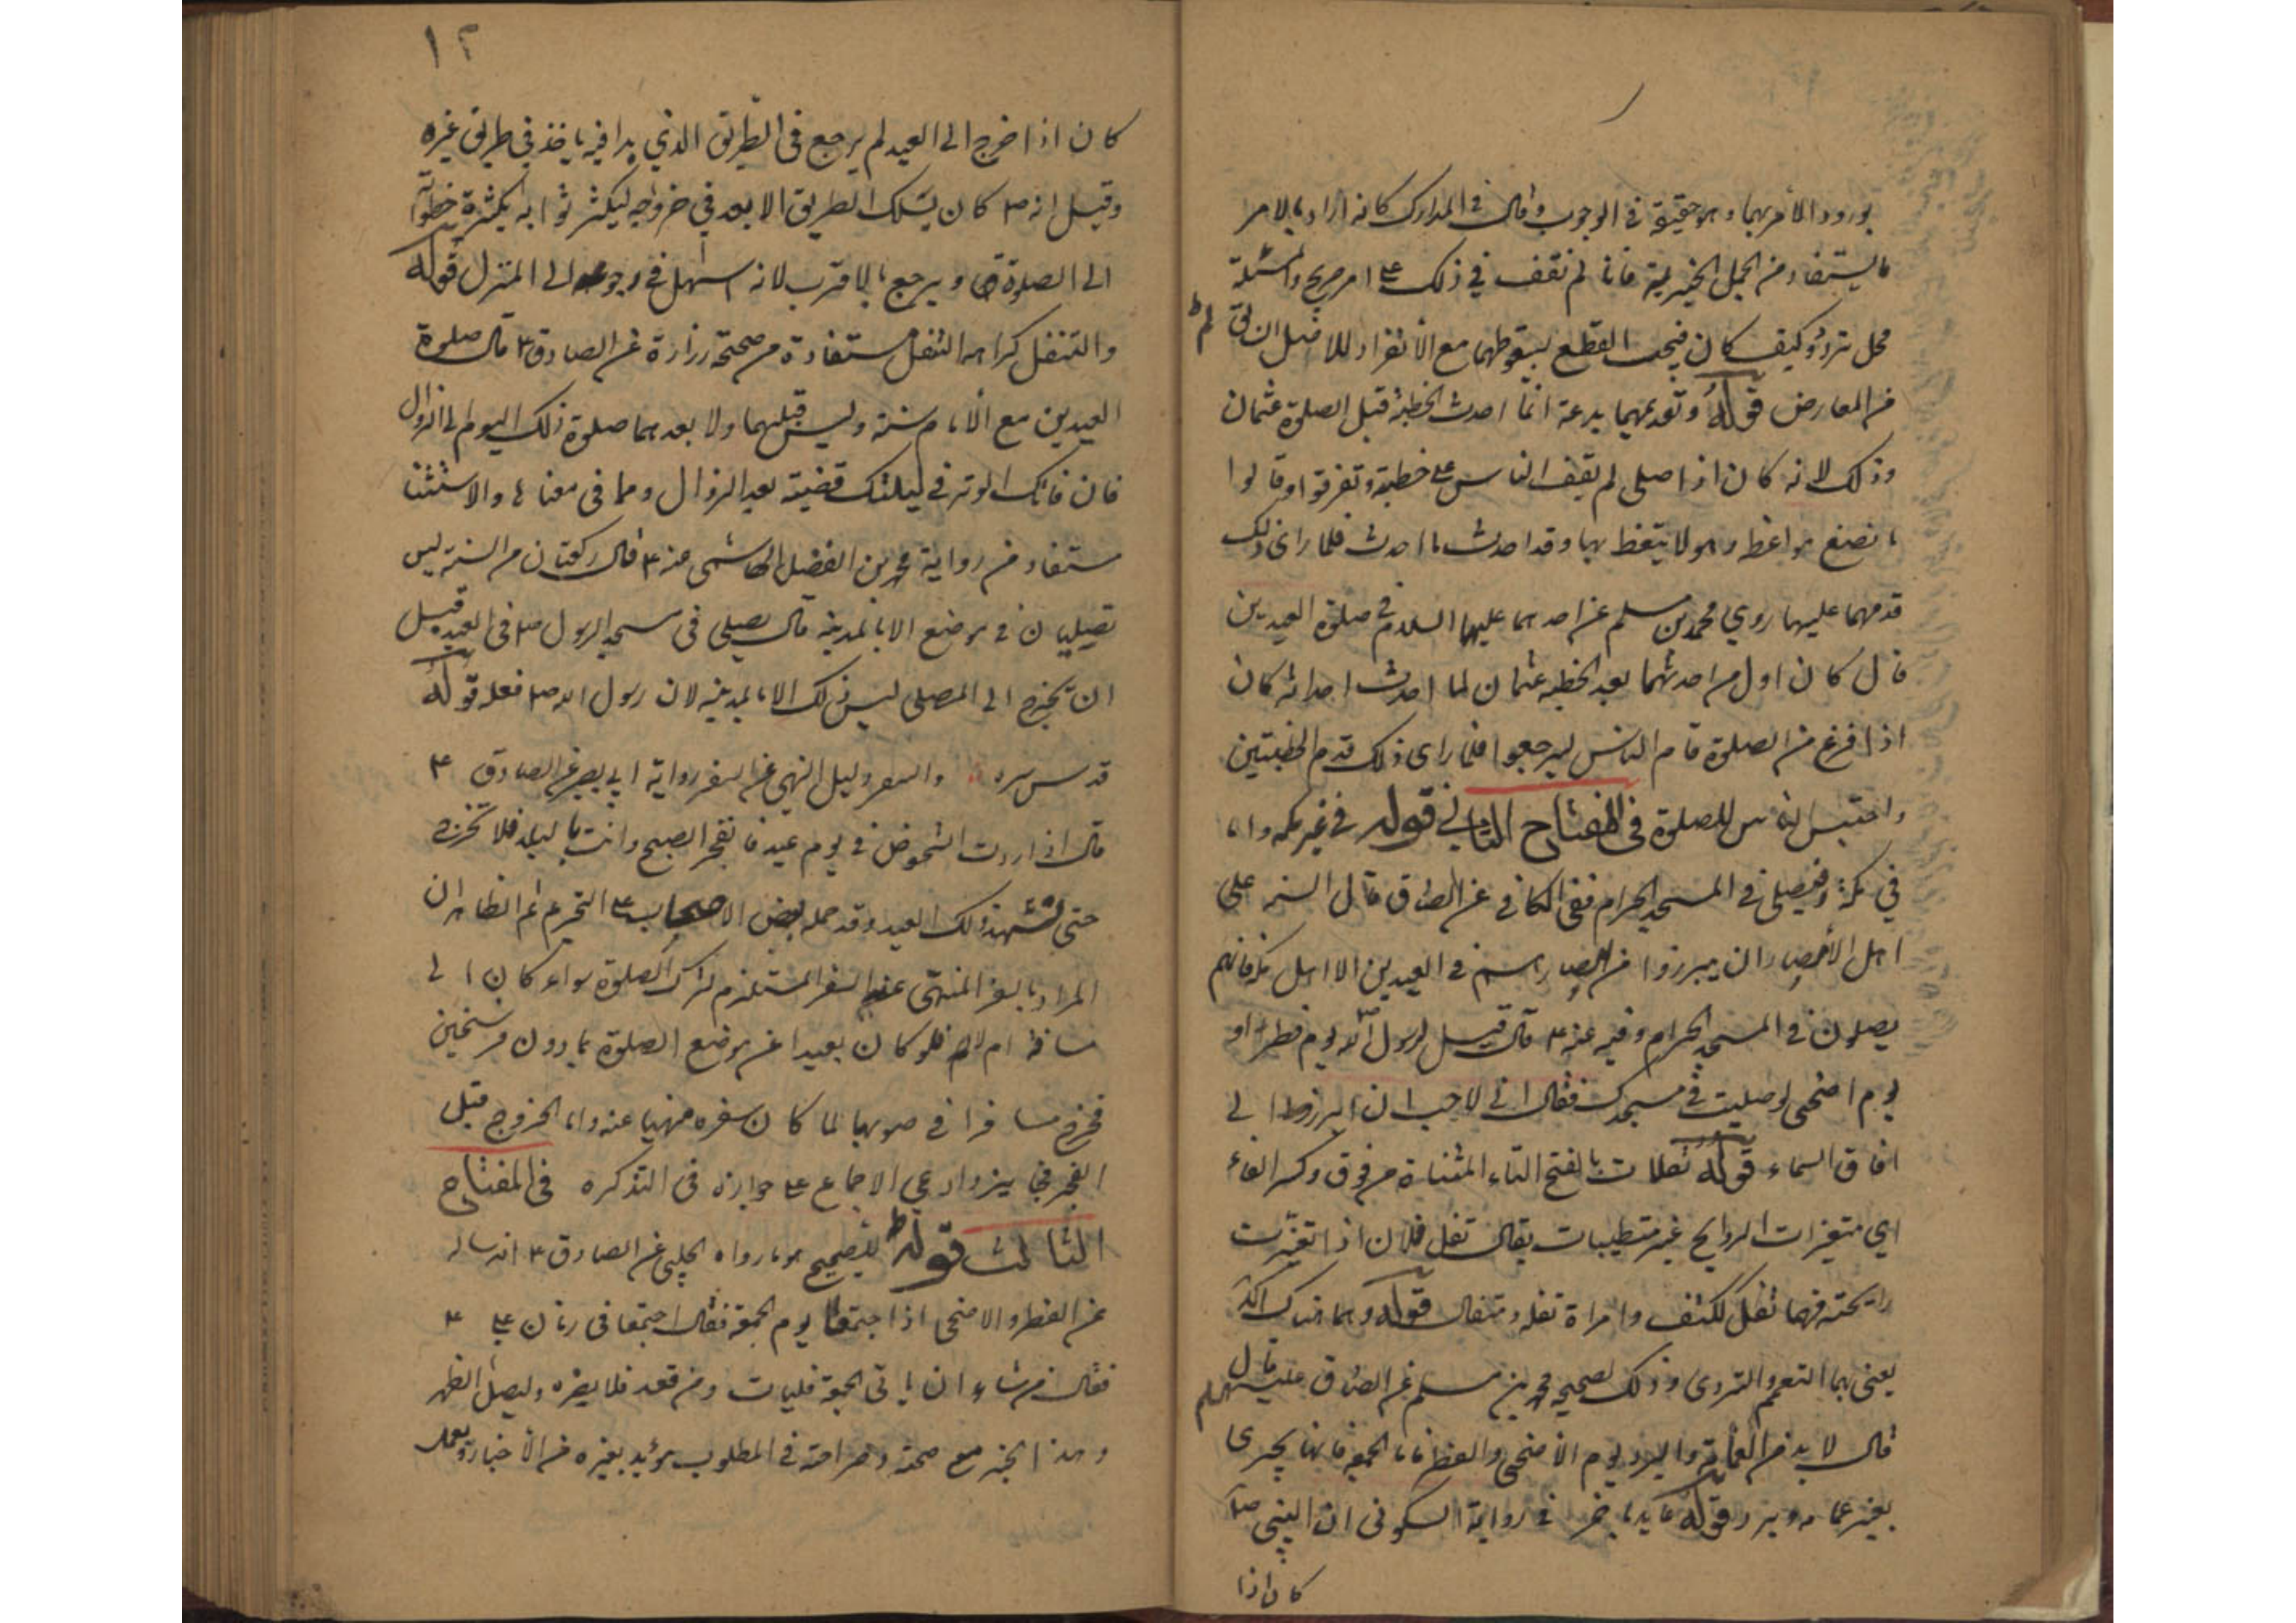 بورود الأمر بهما وهو حقيقة في الوجوب وقال في المدارك كانه اراد بالامر
ما يستفاد من الجمل الخبرية فانا لم نقف في ذلك على امر صريح والمسئلة
محل تردد وكيف كان فيجب القطع بسقوطهما مع الانفراد للاصل
من المعارض قوله وتقديمهما بدعة انما احدث الخطبة قبل الصلوة عثمان
وذلك لانه كان اذا صلى لم يقف الناس على خطبته وتفرقوا وقالوا
ما نصنع بمواعظه وهو لا يتعظ بها وقد احدث ما احدث فلما راى ذلك
قدمهما عليها روي محمد بن مسلم عن احدهما عليهما السلام في صلوة العيدين
قال كان اول من احدثهما بعد الخطبة عثمان لما احدث احداثه كان
اذا فرغ من الصلوة قام الناس ليرجعوا فلما راى ذلك قدم الخطبتين
واحتبس الناس للصلوة في المفتاح الثاني قوله في غير مكة واما
في مكة فيصلي في المسجد الحرام ففي الكافي عن الصادق قال السنة على
اهل الأمصار ان يبرزوا من امصارهم في العيدين الا اهل مكة فانهم
يصلون في المسجد الحرام وفيه عنه ع قال قيل لرسول الله يوم فطر او
يوم اضحى لو صليت في مسجدك فقال اني لاحب ان ابرز الى
افاق السماء قوله تفلات بالفتح التاء المثناة من فوق وكسر الفاء
اي متغيرات الروايح غير متطيبات يقال تفل فلان اذا تغيرت
رايحته فهما تفل ككتف وامراة تفلة ومتفال قوله وهما هناك اكد
يعنى بهما التعمم والتردى وذلك لصحيحة محمد بن مسلم عن الصادق عليه السلم
قال لا بد من العمامة والبرد يوم الأضحى والفطر فاما الجمعة فانها تجزى
بغير عمامة وبرد قوله عايدا بآخر في رواية السكونى ان النبي ص
كان اذا
١٢
كان اذا خرج الى العيد لم يرجع في الطريق الذي بدا فيه ياخذ في طريق غيره
وقيل انه ص كان يسلك الطريق الابعد في خروجه ليكثر ثوابه بكثرة خطواته
الى الصلوة ويرجع بالاقرب لانه اسهل في رجوعه الى المنزل قوله
والتنفل كراهة التنفل مستفادة من صحيحة زرارة عن الصادق ع قال صلوة
العيدين مع الأمام سنة وليس قبلهما ولا بعدهما صلوة ذلك اليوم الى الزوال
فان فاتك الوتر في ليلتك قضيته بعد الزوال ومما في معناها والاستثنا
مستفاد من رواية محمد بن الفضيل الهاشمى عنه ع قال ركعتان من السنة ليس
تصليان في موضع الا بالمدينة قال يصلى في مسجد الرسول ص في العيد قبل
ان يخرج الى المصلى ليس ذلك الا بالمدينة لان رسول الله ص فعله قوله
قدس سره والسفر دليل النهي عن السفر رواية ابي بصير عن الصادق ع
قال اذا اردت الشخوص في يوم عيد فانفجر الصبح وانت بالبلد فلا تخرج
حتى تشهد ذلك العيد وقد حمله بعض الاصحاب على التحريم ثم الظاهر ان
المراد بالسفر المنهى عنه السفر المستلزم لترك الصلوة سواء كان الى
مسافة ام لا فلو كان بعيدا عن موضع الصلوة بما دون فرسخين
فخرج مسافرا في صوبها لما كان سفره منهيا عنه واما الخروج قبل
الفجر فجايز وادعي الاجماع على جوازه في التذكره في المفتاح
الثالث قوله للصحيح هو ما رواه الحلبي عن الصادق ع انه ساله
عن الفطر والاضحى اذا اجتمعا يوم الجمعة فقال اجتمعا في زمان على ع
فقال من شاء ان ياتى الجمعة فليات ومن قعد فلا يضره وليصل الظهر
وهذا الخبر مع صحته وصراحته في المطلوب مؤيد بغيره من الأخبار وبعمل